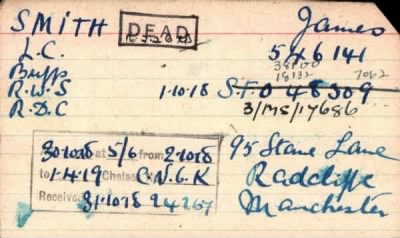 SMITH DEAD James
L.C. 546141
Buffs 38100
18132 7062
R.W.S 1·10·18 S.F.O 48309
R.D.C 3/MS/17686
30·10·18 at 5/6 from 2·10·18 95 Stane Lane
to 1·4·19 Chelsea C.N.G.K Radcliffe
Received 31·10·18 94267 Manchester